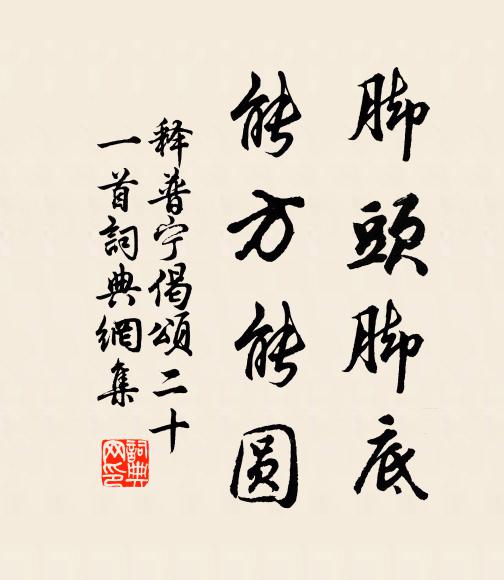 脚頭脚底
能方能圆
释普宁偈頌二十
一首詞典網集
詞典
网印